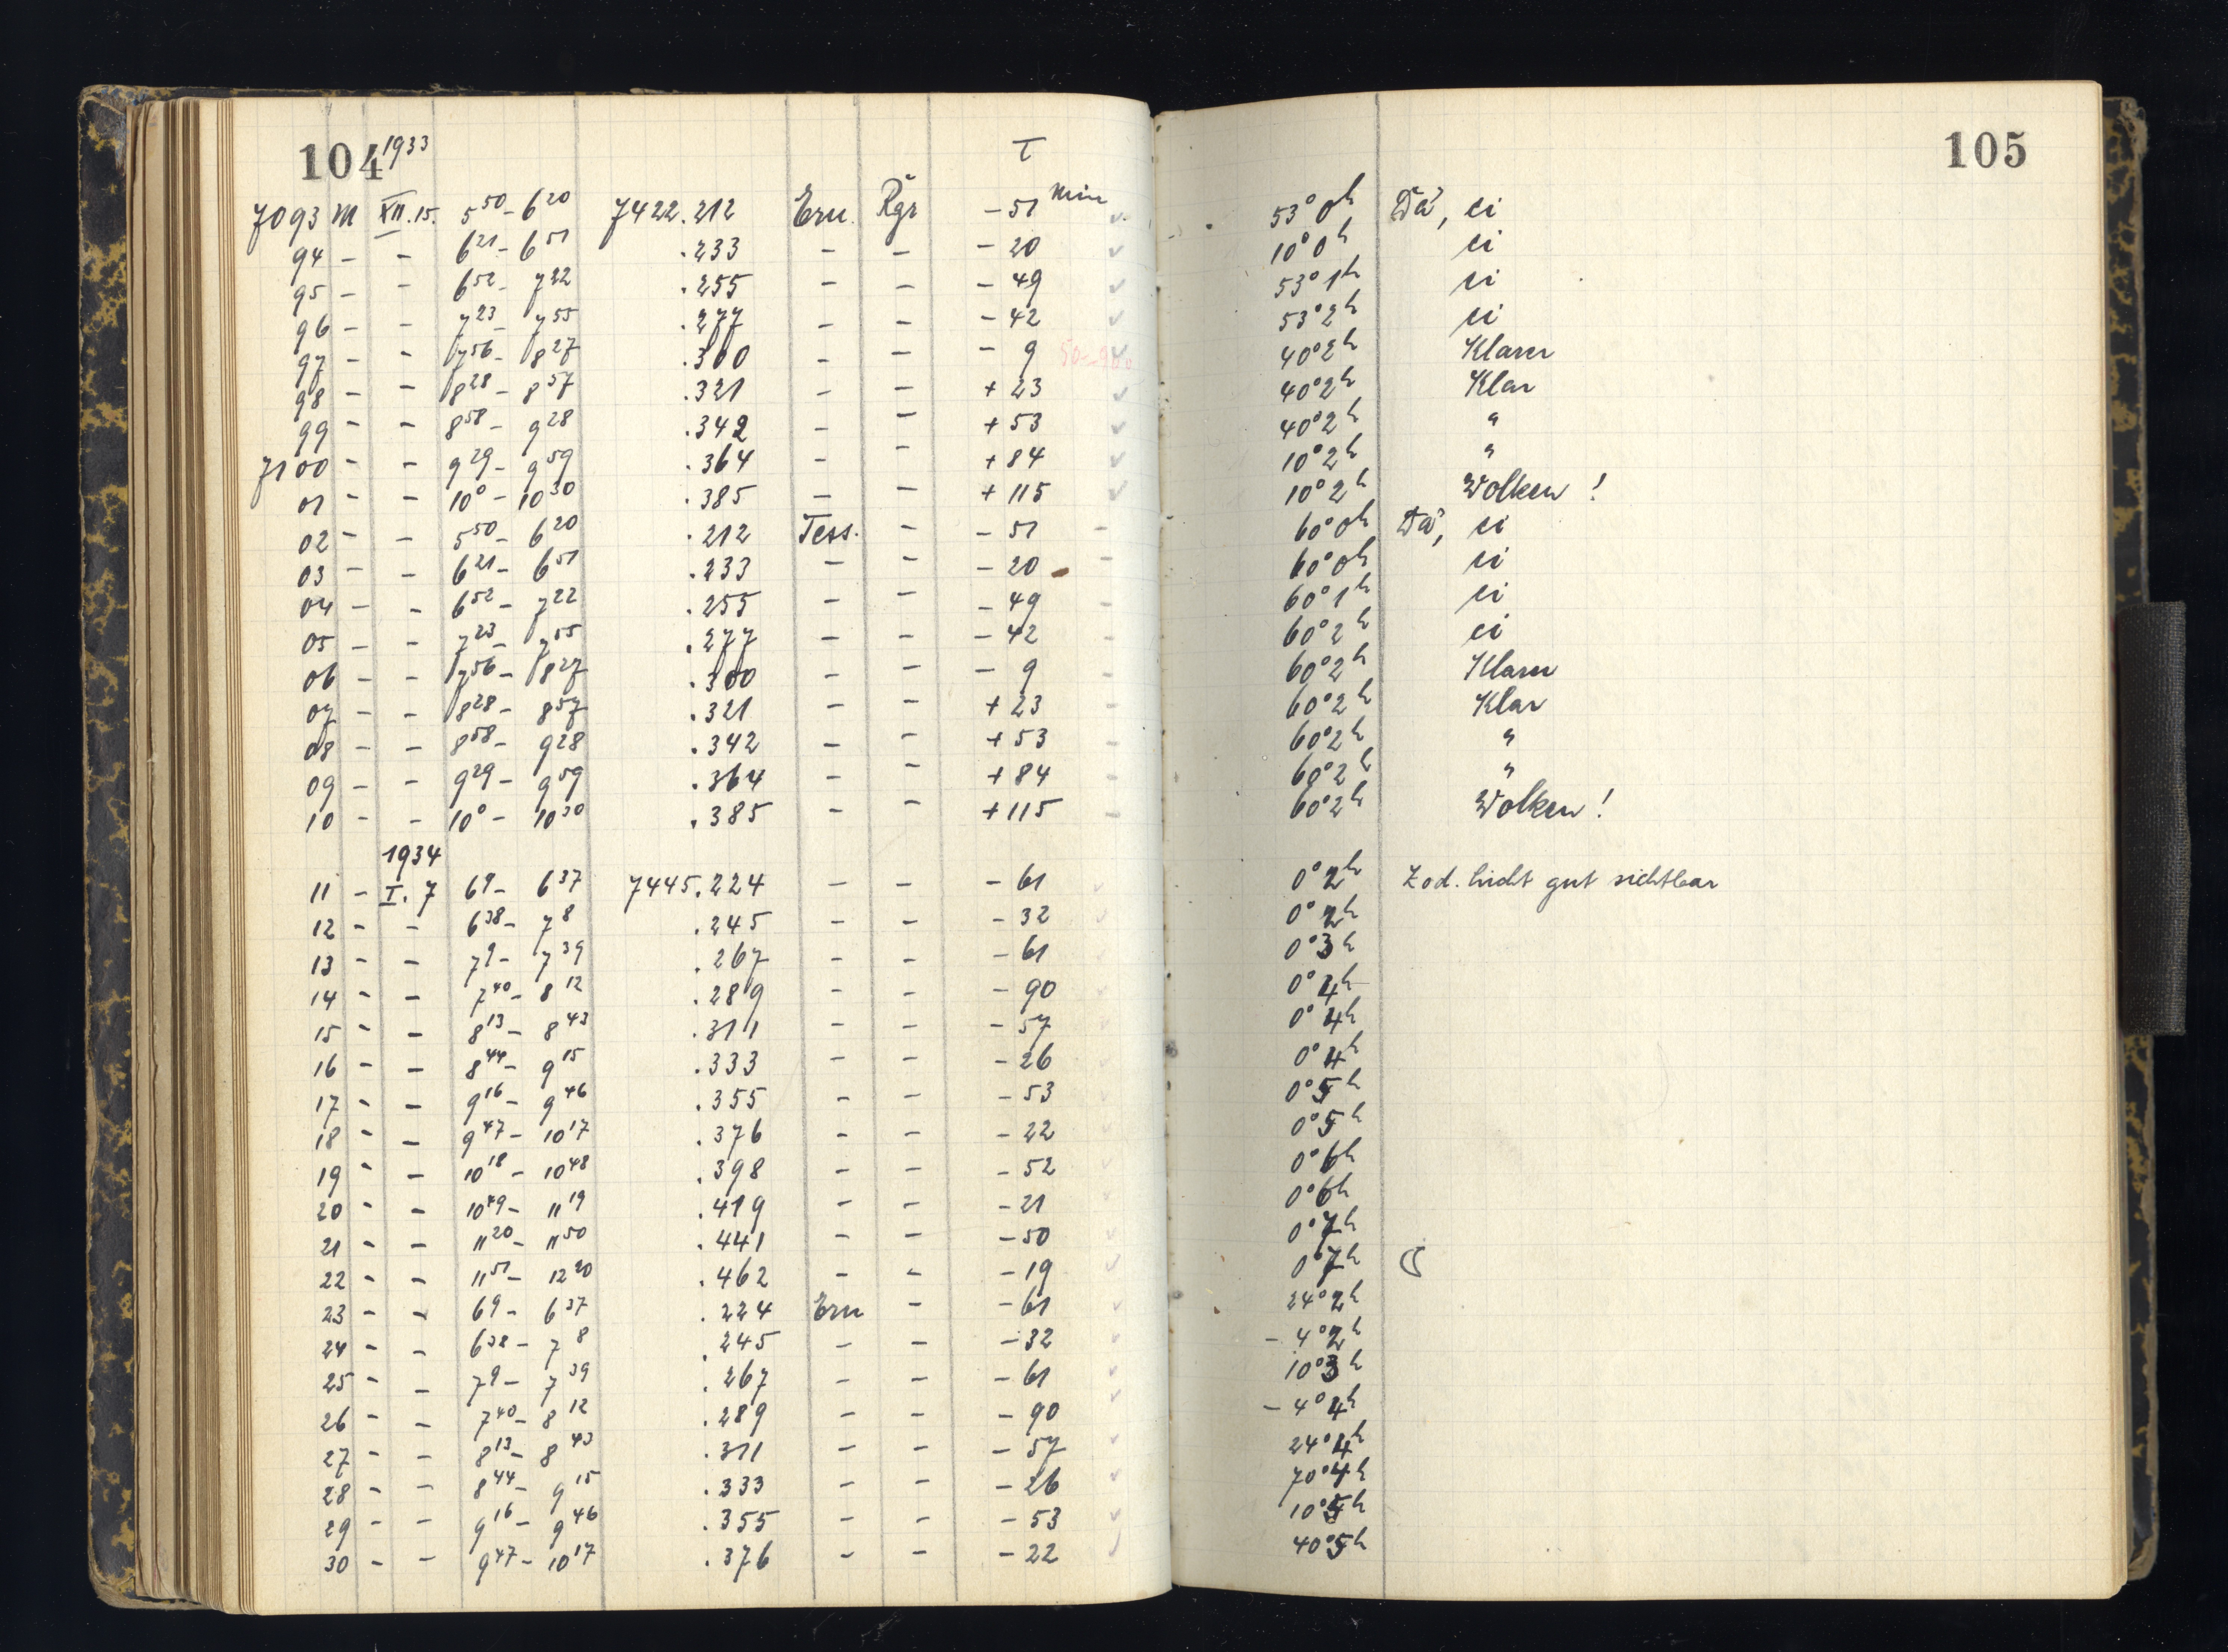 104 1933 τ 105
7093 M XII.15. 5 50 - 6 20 7422.212 Ern. Rgr - 51 Min 53° 0h Dä, ci
94 - - 6 21 - 6 51 .233 - - - 20 10° 0h ci
95 - - 6 52 - 7 22 .255 - - - 49 53° 1h ci
96 - - 7 23 - 7 55 .277 - - - 42 53° 2h ci
97 - - 7 56 - 8 27 .300 - - - 9 40° 2h Klarer
98 - - 8 28 - 8 57 .321 - - + 23 40° 2h Klar
99 - - 8 58 - 9 28 .342 - - + 53 40° 2h "
7100 - - 9 29 - 9 59 .364 - - + 84 10° 2h "
01 - - 10 0 - 10 30 .385 - - + 115 10° 2h Wolken !
02 - - 5 50 - 6 20 .212 Tess. - - 51 - 60° 0h Dä, ci
03 - - 6 21 - 6 51 .233 - - - 20 - 60° 0h ci
04 - - 6 52 - 7 22 .255 - - - 49 - 60° 1h ci
05 - - 7 23 - 7 55 .277 - - - 42 - 60° 2h ci
06 - - 7 56 - 8 27 .300 - - - 9 - 60° 2h Klarer
07 - - 8 28 - 8 57 .321 - - + 23 - 60° 2h Klar
08 - - 8 58 - 9 28 .342 - - + 53 - 60° 2h "
09 - - 9 29 - 9 59 .364 - - + 84 - 60° 2h "
10 - - 10 0 - 10 30 .385 - - + 115 - 60° 2h Wolken !
1934
11 - I. 7 6 9 - 6 37 7445.224 - - - 61 0° 2h Zod. licht gut sichtbar
12 - - 6 38 - 7 8 .245 - - - 32 0° 2h
13 - - 7 9 - 7 39 .267 - - - 61 0° 3h
14 - - 7 40 - 8 12 .289 - - - 90 0° 4h
15 - - 8 13 - 8 43 .311 - - - 57 0° 4h
16 - - 8 44 - 9 15 .333 - - - 26 0° 4h
17 - - 9 16 - 9 46 .355 - - - 53 0° 5h
18 - - 9 47 - 10 17 .376 - - - 22 0° 5h
19 - - 10 18 - 10 48 .398 - - - 52 0° 6h
20 - - 10 49 - 11 19 .419 - - - 21 0° 6h
21 - - 11 20 - 11 50 .441 - - - 50 0° 7h
22 - - 11 51 - 12 20 .462 - - - 19 0° 7h ☾
23 - - 6 9 - 6 37 .224 Ern - - 61 24° 2h
24 - - 6 38 - 7 8 .245 - - - 32 - 4° 2h
25 - - 7 9 - 7 39 .267 - - - 61 10° 3h
26 - - 7 40 - 8 12 .289 - - - 90 - 4° 4h
27 - - 8 13 - 8 43 .311 - - - 57 24° 4h
28 - - 8 44 - 9 15 .333 - - - 26 70° 4h
29 - - 9 16 - 9 46 .355 - - - 53 10° 5h
30 - - 9 47 - 10 17 .376 - - - 22 40° 5h